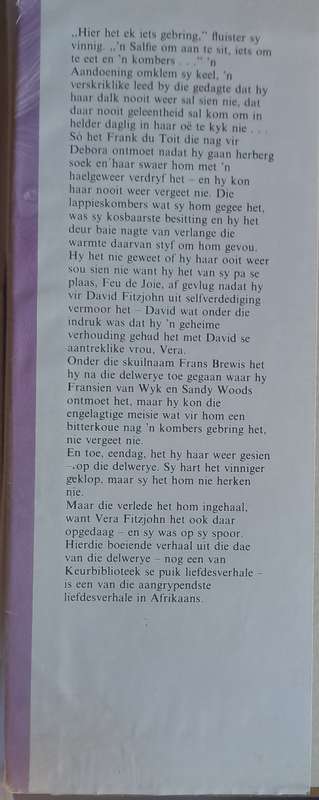 „Hier het ek iets gebring,” fluister sy
vinnig. „'n Salfie om aan te sit, iets om
te eet en 'n kombers . . .” 'n
Aandoening omklem sy keel, 'n
verskriklike leed by die gedagte dat hy
haar dalk nooit weer sal sien nie, dat
daar nooit geleentheid sal kom om in
helder daglig in haar oë te kyk nie . . .
Só het Frank du Toit die nag vir
Debora ontmoet nadat hy gaan herberg
soek en haar swaer hom met 'n
haelgeweer verdryf het – en hy kon
haar nooit weer vergeet nie. Die
lappieskombers wat sy hom gegee het,
was sy kosbaarste besitting en hy het
deur baie nagte van verlange die
warmte daarvan styf om hom gevou.
Hy het nie geweet of hy haar ooit weer
sou sien nie want hy het van sy pa se
plaas, Feu de Joie, af gevlug nadat hy
vir David Fitzjohn uit selfverdediging
vermoor het – David wat onder die
indruk was dat hy 'n geheime
verhouding gehad het met David se
aantreklike vrou, Vera.
Onder die skuilnaam Frans Brewis het
hy na die delwerye toe gegaan waar hy
Fransien van Wyk en Sandy Woods
ontmoet het, maar hy kon die
engelagtige meisie wat vir hom een
bitterkoue nag 'n kombers gebring het,
nie vergeet nie.
En toe, eendag, het hy haar weer gesien
– op die delwerye. Sy hart het vinniger
geklop, maar sy het hom nie herken
nie.
Maar die verlede het hom ingehaal,
want Vera Fitzjohn het ook daar
opgedaag – en sy was op sy spoor.
Hierdie boeiende verhaal uit die dae
van die delwerye – nog een van
Keurbiblioteek se puik liefdesverhale –
is een van die aangrypendste
liefdesverhale in Afrikaans.